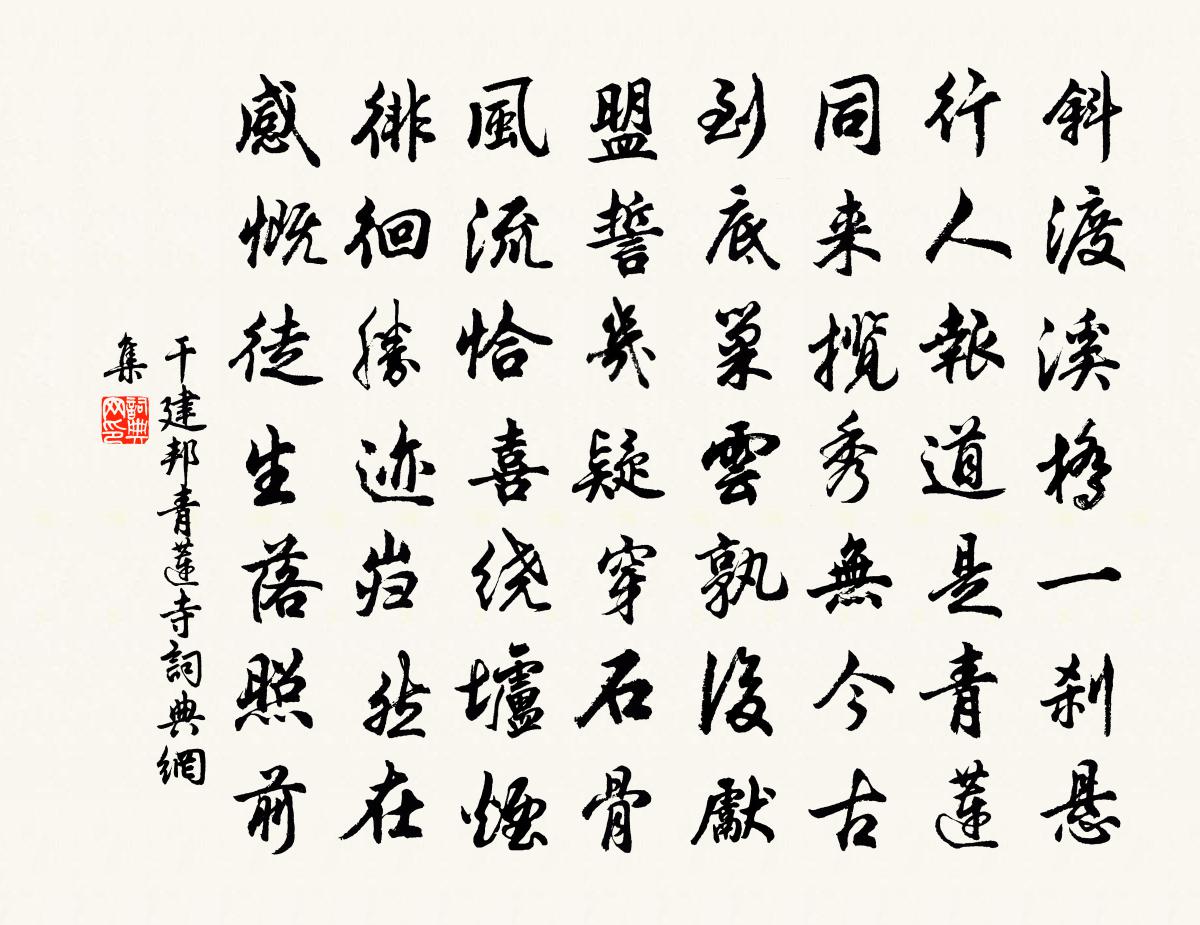 斜渡溪橋一刹悬
行人報道是青蓮
同来攬秀無今古
到底巢雲孰後獻
盟誓幾疑穿石骨
風流恰喜绕壚煙
徘徊勝迹岿然在
感慨徒生落照前
干建邦青蓮寺詞典網
集
詞典
网印